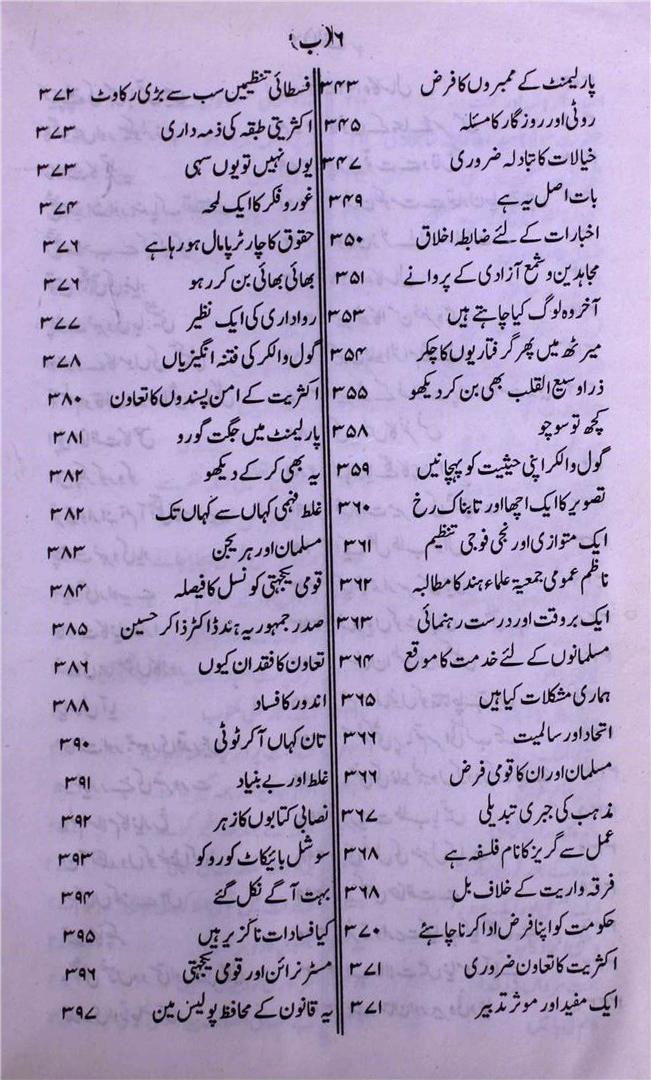 ۶(ب)
پارلیمنٹ کے ممبروں کا فرض ۳۴۳
روٹی اور روزگار کا مسئلہ ۳۴۵
خیالات کا تبادلہ ضروری ۳۴۷
بات اصل یہ ہے ۳۴۹
اخبارات کے لئے ضابطہ اخلاق ۳۵۰
مجاہدین و شمع آزادی کے پروانے ۳۵۱
آخر وہ لوگ کیا چاہتے ہیں ۳۵۳
میرٹھ میں پھر گرفتاریوں کا چکر ۳۵۴
ذرا وسیع القلب بھی بن کر دیکھو ۳۵۵
کچھ تو سوچو ۳۵۸
گول والکر اپنی حیثیت کو پہچانیں ۳۵۹
تصویر کا ایک اچھا اور تابناک رخ ۳۶۰
ایک متوازی اور نجی فوجی تنظیم ۳۶۱
ناظم عمومی جمعیۃ علماء ہند کا مطالبہ ۳۶۲
ایک بروقت اور درست رہنمائی ۳۶۳
مسلمانوں کے لئے خدمت کا موقع ۳۶۴
ہماری مشکلات کیا ہیں ۳۶۵
اتحاد اور سالمیت ۳۶۶
مسلمان اور ان کا قومی فرض ۳۶۶
مذہب کی جبری تبدیلی ۳۶۷
عمل سے گریز کا نام فلسفہ ہے ۳۶۸
فرقہ واریت کے خلاف بل ۳۶۸
حکومت کو اپنا فرض ادا کرنا چاہئے ۳۷۰
اکثریت کا تعاون ضروری ۳۷۱
ایک مفید اور موثر تدبیر ۳۷۱
فسطائی تنظیمیں سب سے بڑی رکاوٹ ۳۷۲
اکثریتی طبقہ کی ذمہ داری ۳۷۳
یوں نہیں تو یوں سہی ۳۷۳
غور و فکر کا ایک لمحہ ۳۷۴
حقوق کا چارٹر پامال ہو رہا ہے ۳۷۶
بھائی بھائی بن کر رہو ۳۷۶
رواداری کی ایک نظیر ۳۷۷
گول والکر کی فتنہ انگیزیاں ۳۷۸
اکثریت کے امن پسندوں کا تعاون ۳۸۰
پارلیمنٹ میں جگت گورو ۳۸۱
یہ بھی کر کے دیکھو ۳۸۲
غلط فہمی کہاں سے کہاں تک ۳۸۲
مسلمان اور ہریجن ۳۸۳
قومی یکجہتی کونسل کا فیصلہ ۳۸۴
صدر جمہوریہ ہند ڈاکٹر ذاکر حسین ۳۸۵
تعاون کا فقدان کیوں ۳۸۶
اندور کا فساد ۳۸۸
تان کہاں آکر ٹوٹی ۳۹۰
غلط اور بے بنیاد ۳۹۱
نصابی کتابوں کا زہر ۳۹۲
سوشل بائیکاٹ کو روکو ۳۹۳
بہت آگے نکل گئے ۳۹۴
کیا فسادات ناگزیر ہیں ۳۹۵
مسٹر نرائن اور قومی یکجہتی ۳۹۶
یہ قانون کے محافظ پولیس مین ۳۹۷